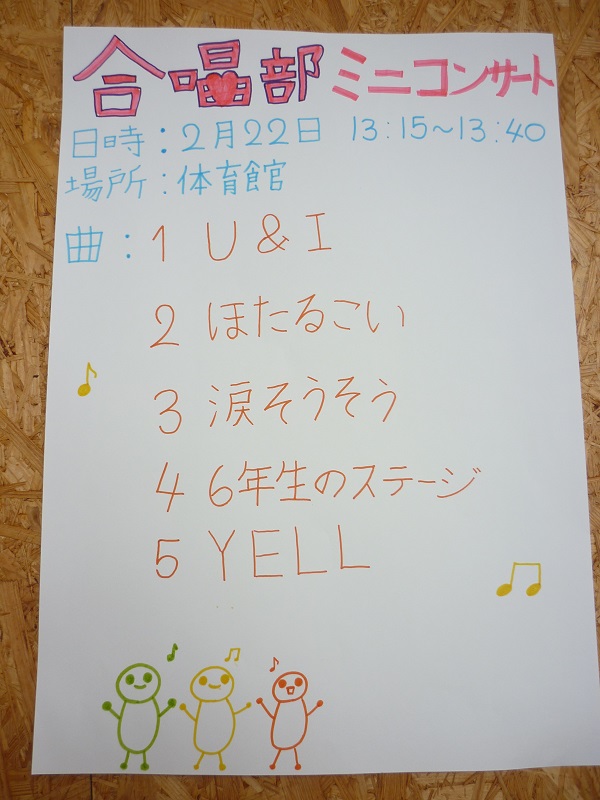 合唱部 ミニコンサート
日時：2月22日 13:15～13:40
場所：体育館
曲：1 U & I
2 ほたるこい
3 涙そうそう
4 6年生のステージ
5 YELL